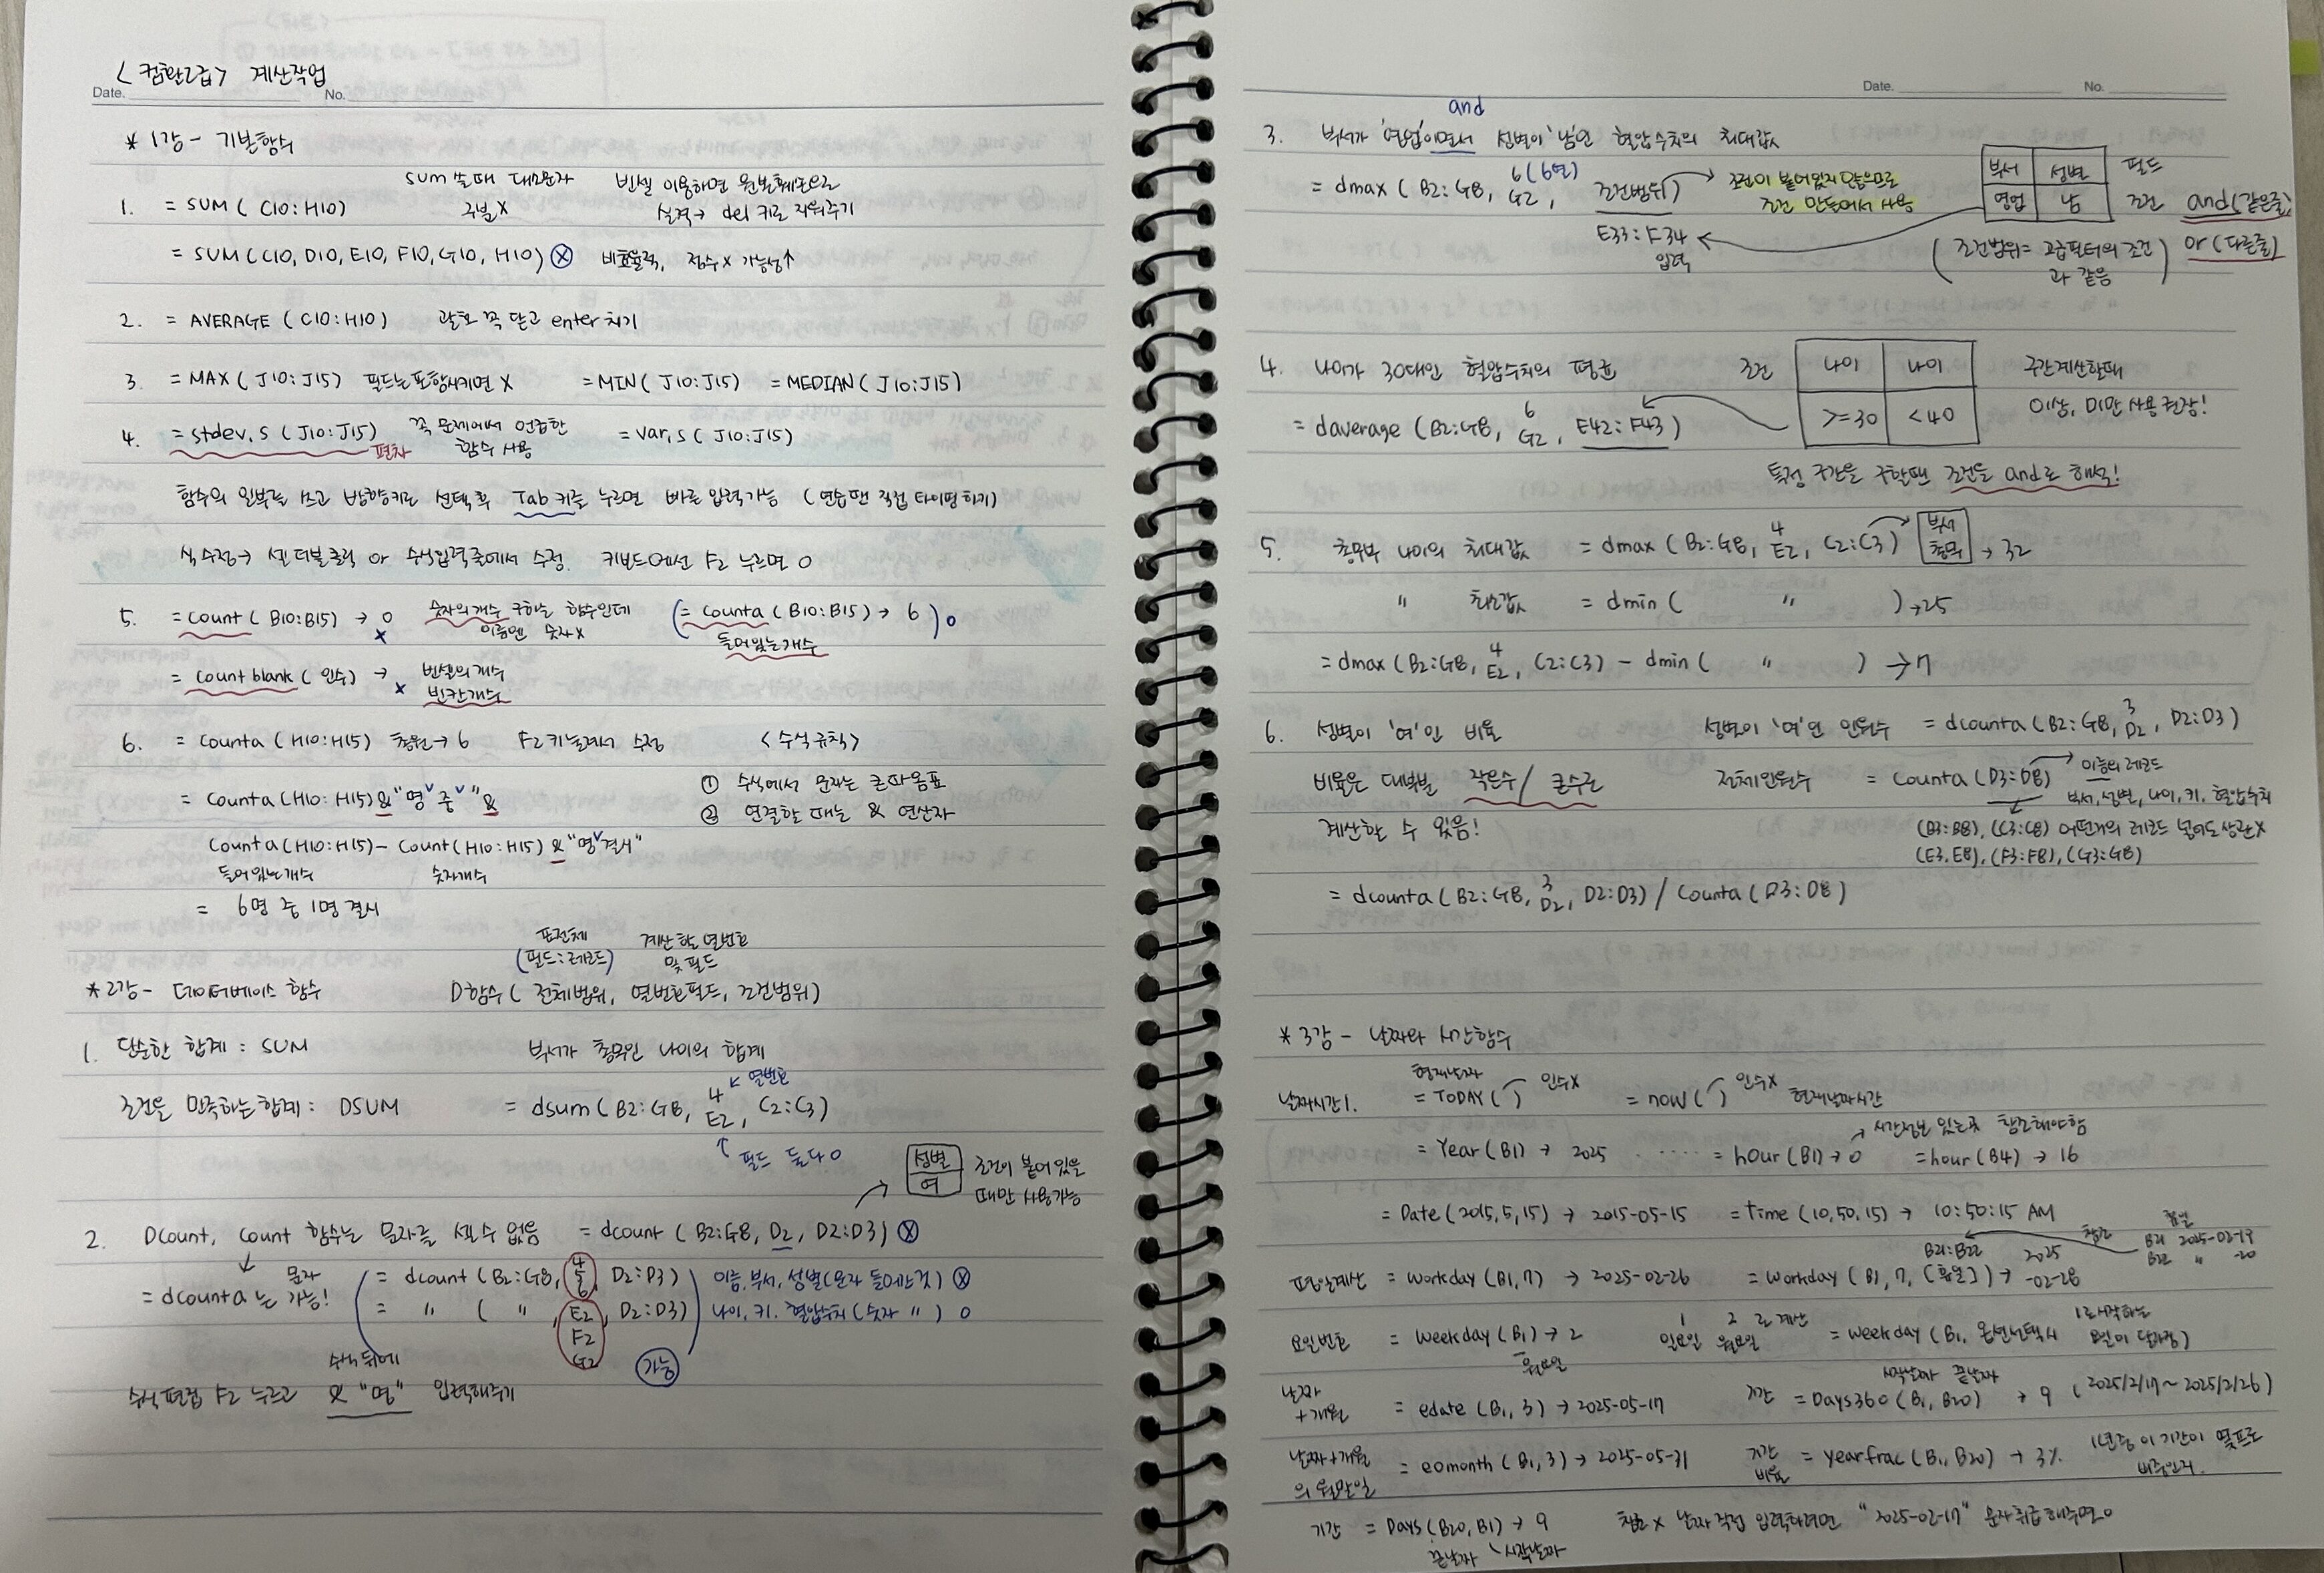 <컴활2급> 계산작업
Date. No.
* 1강 - 기본함수
sum 쓸때 대소문자 구별X
빈셀 이용하면 원본훼손으로 실격→ del 키로 지워주기
1. = SUM ( C10:H10)
= SUM ( C10, D10, E10, F10, G10, H10) ⓧ 비효율적, 점수x 가능성↑
2. = AVERAGE ( C10:H10) 괄호 꼭 닫고 enter 치기
3. = MAX ( J10:J15) 필드는 포함시키면 X = MIN ( J10:J15) = MEDIAN ( J10:J15)
4. = stdev.s ( J10:J15) 편차 꼭 문제에서 언급한 함수 사용 = var.s ( J10:J15)
함수의 일부를 쓰고 방향키로 선택후 Tab 키를 누르면 빠른 입력가능 (연습땐 직접 타이핑하기)
식 수정→ 셀 더블클릭 or 수식입력줄에서 수정. 키보드에선 F2 누르면 O
5. = count ( B10:B15) → 0 x 숫자의 개수 구하는 함수인데 이름엔 숫자x (= counta ( B10:B15) → 6 ) o
들어있는 개수
= count blank ( 인수) → x 빈셀의 개수 빈칸개수
6. = counta (H10:H15) 총원→ 6 F2 키 눌러서 수정 <수식규칙>
= counta (H10:H15) & "명ᵛ중ᵛ" & ① 수식에서 문자는 큰따옴표
② 연결할 때는 & 연산자
counta (H10:H15) - count (H10:H15) & "명ᵛ결시"
들어있는개수 숫자개수
= 6명 중 1명 결시
표전체 (필드:레코드) 계산할 열번호 및 필드
* 2강 - 데이터베이스 함수 D함수 ( 전체범위, 열번호필드, 조건범위)
1. 단순한 합계 : SUM 부서가 총무인 나이의 합계
4 ↙ 열번호
조건을 만족하는 합계 : DSUM = dsum ( B2:G8, E2, C2:C3)
↑ 필드 둘다 O
성별 여 조건이 붙어 있을 때만 사용가능
2. Dcount, count 함수는 문자를 셀 수 없음 = dcount ( B2:G8, D2, D2:D3) ⓧ
↓ 문자
= dcounta 는 가능! = dcount ( B2:G8, 4 5 6, D2:D3) 이름, 부서, 성별(문자 들어간것) ⓧ
= 〃 ( 〃 , E2 F2 G2, D2:D3) 나이, 키, 혈압수치 (숫자 〃 ) O
가능
수식 뒤에
수식 편집 F2 누르고 & "명" 입력해주기
Date. No.
and
3. 부서가 '영업'이면서 성별이 '남'인 혈압수치의 최대값
6 (6열)
= dmax ( B2:G8, G2, 조건범위) → 조건이 붙어있지 않으므로 조건 만들어서 사용
E33:F34 입력
부서 성별 필드
영업 남 조건 and (같은줄)
or (다른줄)
( 조건범위= 고급필터의 조건과 같음 )
4. 나이가 30대인 혈압수치의 평균 조건 나이 나이 구간계산할때
>=30 <40 이상, 미만 사용 권장!
6
= daverage ( B2:G8, G2, E42:F43 )
특정 구간을 구할땐 조건을 and로 해석!
5. 총무부 나이의 최대값 = dmax ( B2:G8, 4 E2, C2:C3) 부서 총무 → 32
〃 최소값 = dmin ( 〃 ) → 25
= dmax ( B2:G8, 4 E2, C2:C3) - dmin ( 〃 ) → 7
6. 성별이 '여'인 비율 성별이 '여'인 인원수 = dcounta ( B2:G8, 3 D2, D2:D3)
비율은 대부분 작은수 / 큰수로 계산할 수 있음!
전체인원수 = counta ( D3:D8) 이름의 레코드
부서, 성별, 나이, 키, 혈압수치
(B3:B8), (C3:C8) 어떤거의 레코드 넣어도 상관x
(E3.E8), (F3:F8), (G3:G8)
= dcounta ( B2:G8, 3 D2, D2:D3) / counta ( D3:D8)
* 3강 - 날짜와 시간함수
날짜시간1. 현재날짜 = TODAY ( ) 인수X = now ( ) 인수X 현재날짜시간
시간정보 있는곳 참조해야함
= Year ( B1) → 2025 ····· = hour (B1) → 0 = hour (B4) → 16
= Date ( 2015, 5, 15) → 2015-05-15 = time ( 10, 50, 15) → 10:50:15 AM
참조 휴일
B21:B22 B21 2025-02-19
B22 〃 -20
평일계산 = workday (B1, 7) → 2025-02-26 = workday ( B1, 7, [휴일]) → 2025-02-28
요일번호 = weekday (B1) → 2 월요일 1 일요일 2 월요일 로 계산 = weekday (B1, 옵션선택시 1로시작하는 요일이 달라짐)
날짜+개월 = edate (B1, 3) → 2025-05-17 기간 = Days360 (B1, B20) → 9 (2025/2/17 ~ 2025/2/26)
시작날짜 끝날짜
날짜+개월의 월말일 = eomonth (B1, 3) → 2025-05-31 기간 비율 = yearfrac (B1, B20) → 3% 1년중 이 기간이 몇프로 비중인지.
기간 = Days (B20, B1) → 9 참조 x 날짜 직접 입력하려면 "2025-02-17" 문자 취급 해주면 o
끝날짜 시작날짜